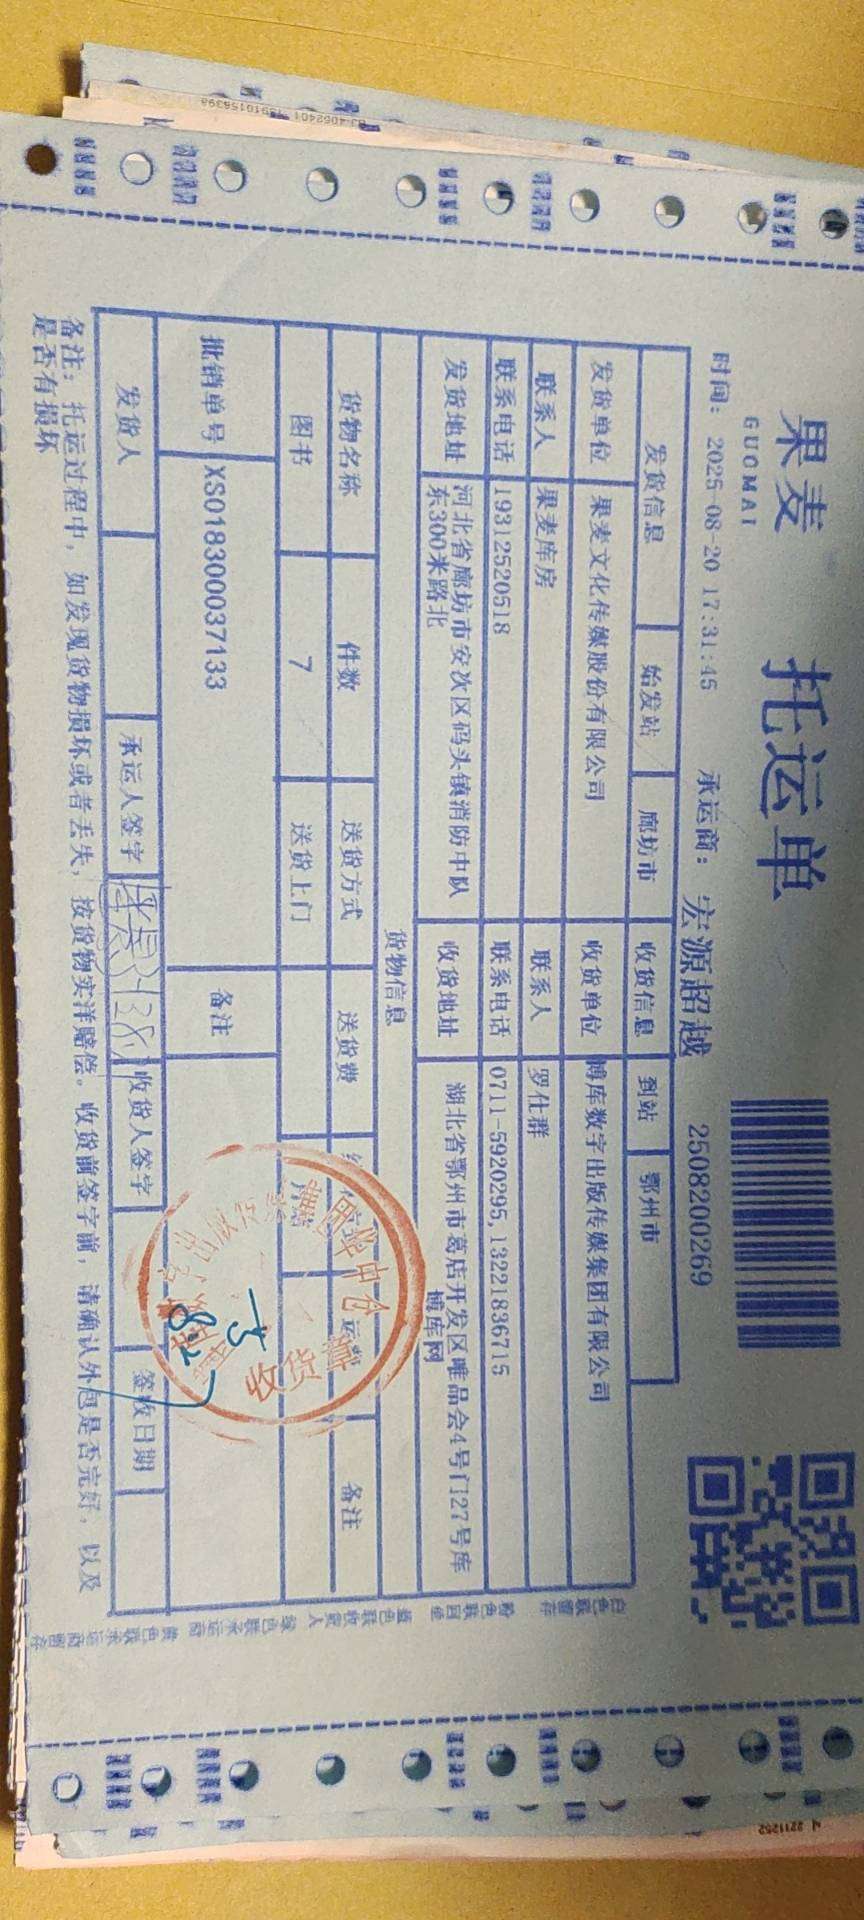 果麦 托运单
GUOMAI
时间: 2025-08-20 17:31:45 承运商: 宏源超越 2508200269
发货信息 始发站 廊坊市 收货信息 到站 鄂州市
发货单位 果麦文化传媒股份有限公司 收货单位 博库数字出版传媒集团有限公司
联系人 果麦库房 联系人 罗仕群
联系电话 19312520518 联系电话 0711-5920295,13221836715
发货地址 河北省廊坊市安次区码头镇消防中队东300米路北 收货地址 湖北省鄂州市葛店开发区唯品会4号门27号库博库网
货物信息
货物名称 件数 送货方式 送货费 备注
图书 7 送货上门
批销单号 XS018300037133 备注
发货人 承运人签字 收货人签字 签收日期
备注: 托运过程中, 如发现货物损坏或者丢失, 按货物实洋赔偿。收货前签字前, 请确认外包是否完好, 以及
是否有损坏
白色联留存 粉色联回单 蓝色联收货人 绿色联承运商 黄色联承运商留存
华中仓
收货章